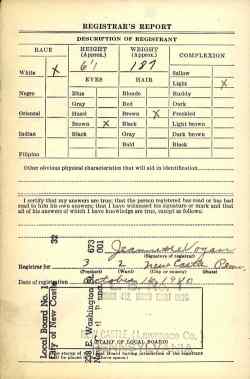 REGISTRAR'S REPORT
DESCRIPTION OF REGISTRANT
RACE
HEIGHT (Approx.)
WEIGHT (Approx.)
COMPLEXION
White X
6'1
187
Sallow
EYES
HAIR
Light X
Negro
Blue
Blonde
Ruddy
Gray
Red
Dark
Oriental
Hazel
Brown X
Freckled
Brown X
Black
Light brown
Indian
Black
Gray
Dark brown
Bald
Black
Filipino
Other obvious physical characteristics that will aid in identification
I certify that my answers are true; that the person registered has read or has had
read to him his own answers; that I have witnessed his signature or mark and that
all of his answers of which I have knowledge are true, except as follows:
(Signature of registrar)
Registrar for 3 2 New Castle Penn.
(Precinct) (Ward) (City or county) (State)
Date of registration October 16, 1940
Local Board No. 32
City of New Castle 673
001
E. Washington
(STAMP OF LOCAL BOARD)